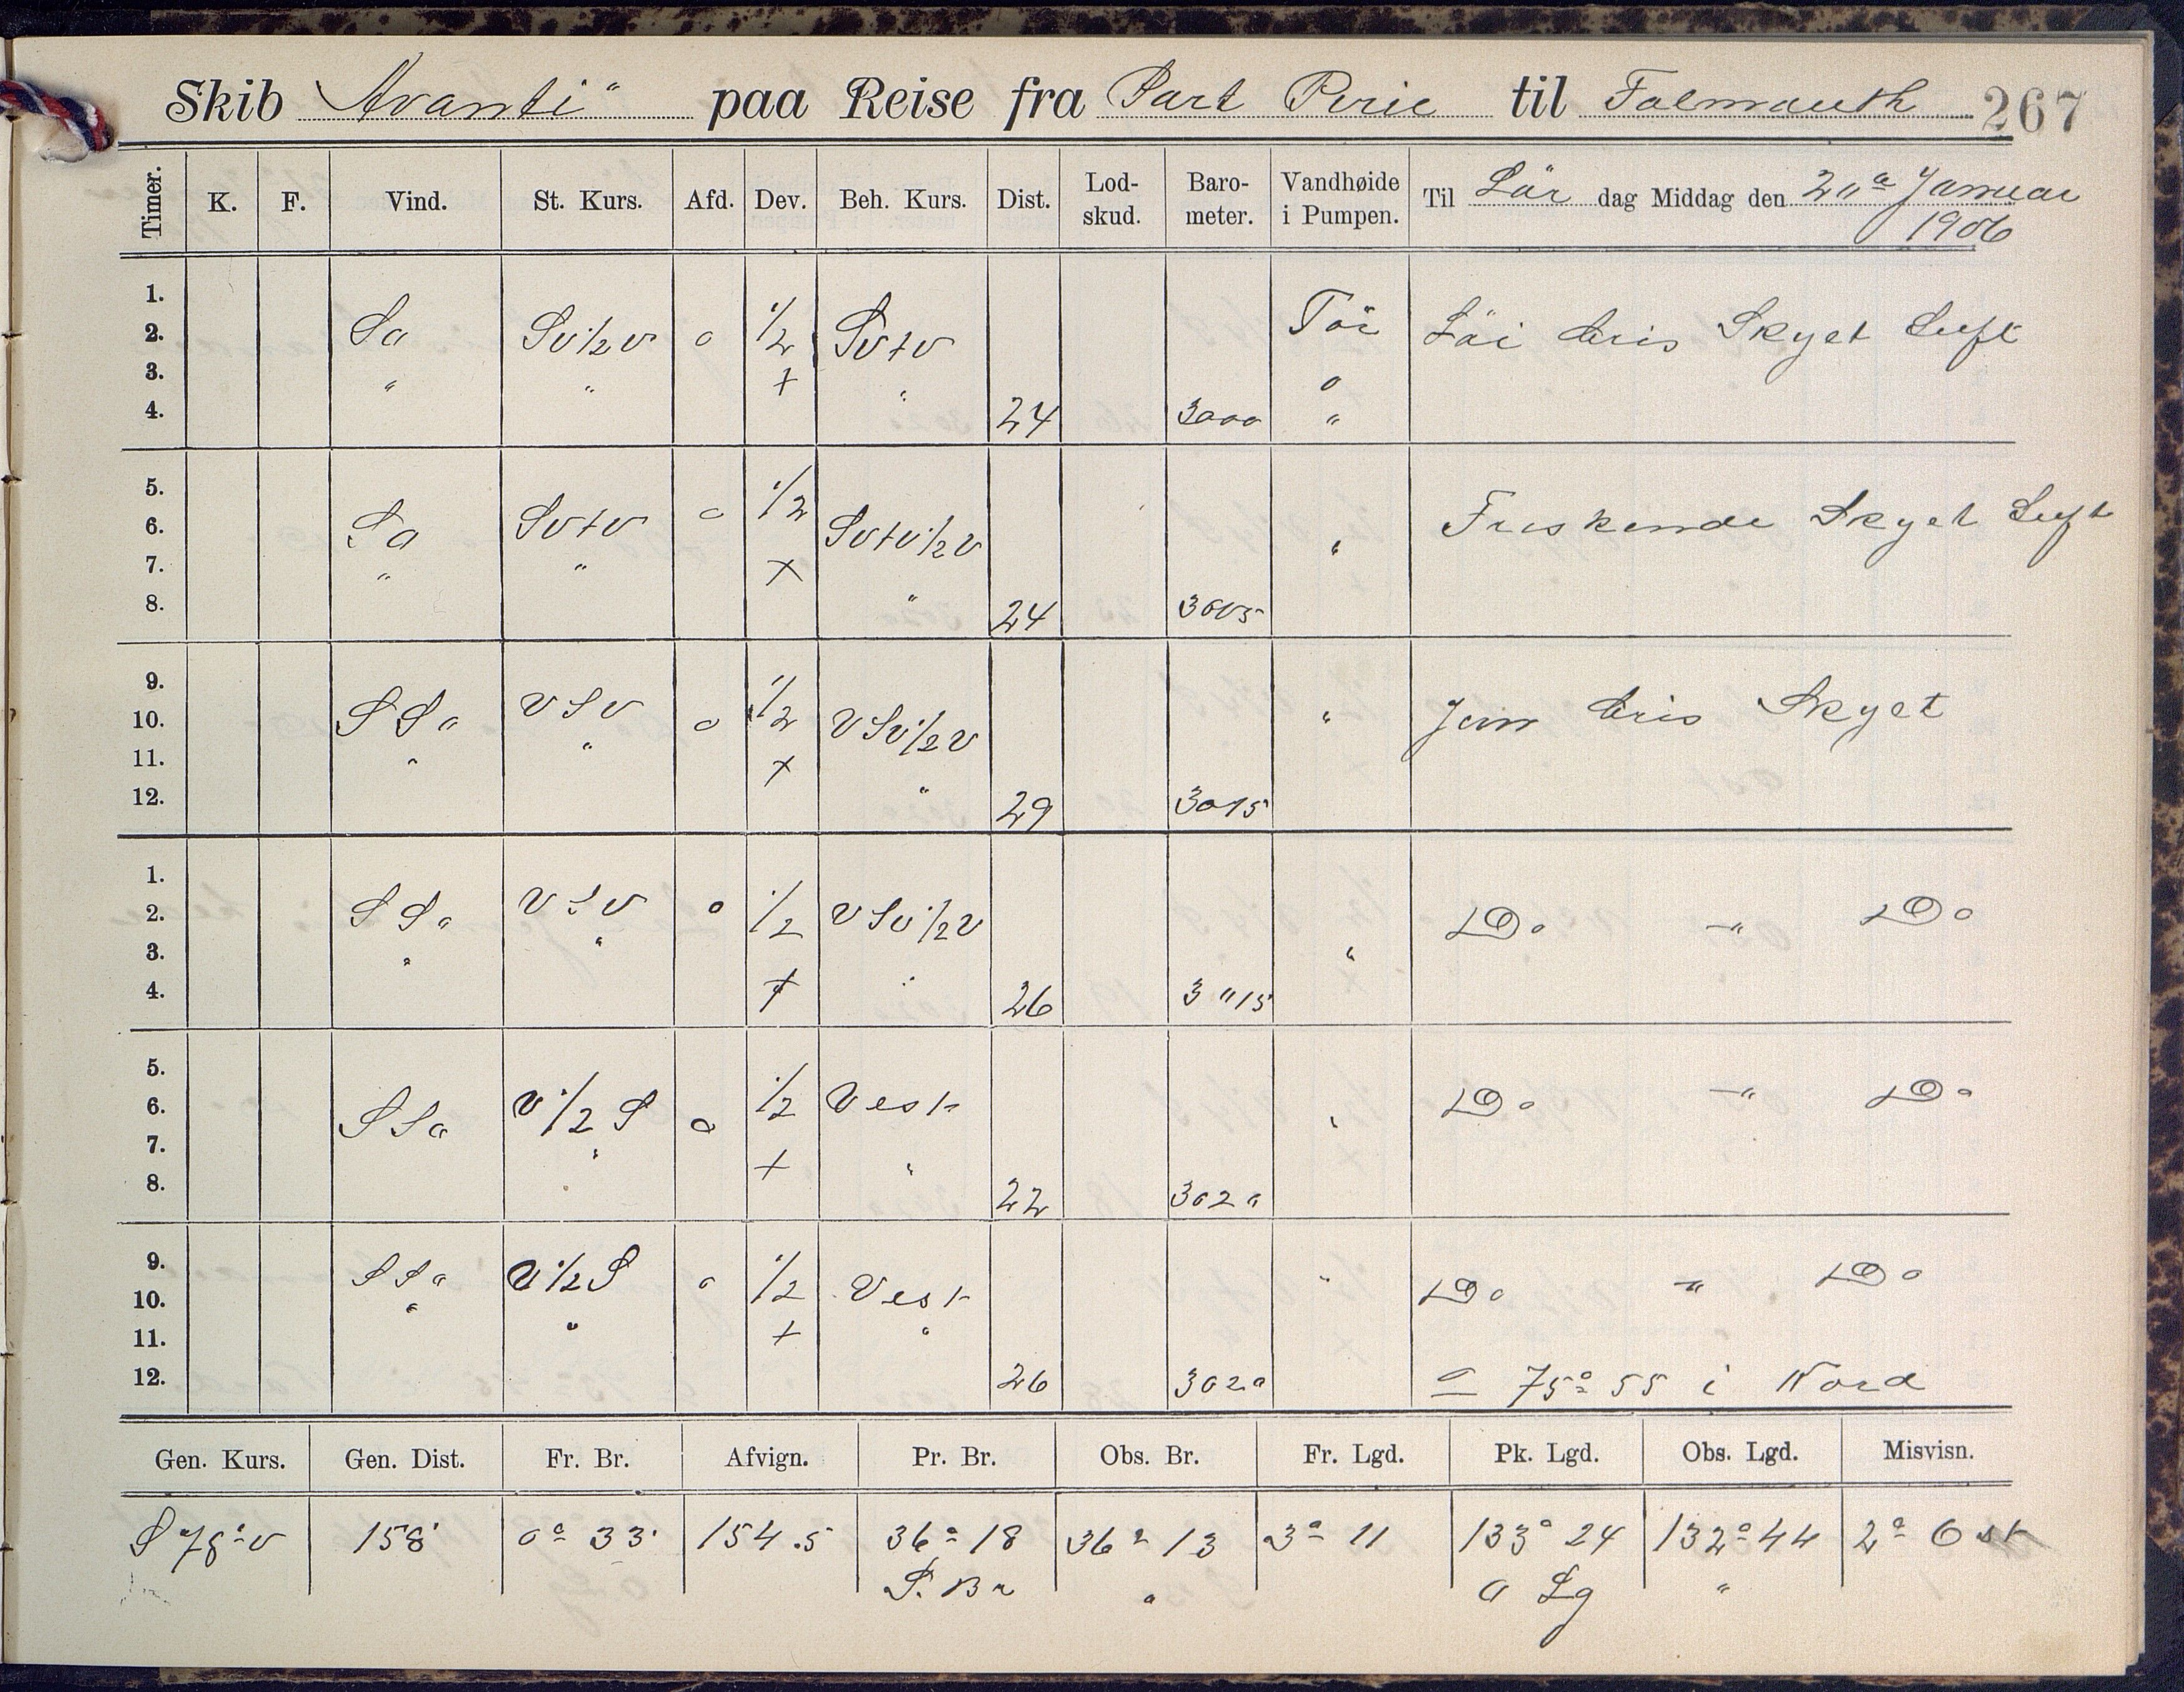 Skib "Avanti" paa Reise fra Port Pirie til Falmouth 267
Timer. K. F. Vind. St. Kurs. Afd. Dev. Beh. Kurs. Dist. Lod-skud. Baro-meter. Vandhøide i Pumpen. Til Lör dag Middag den 20de Januar 1906
1.
2. So Sv 1/2 v o 1/2 Svtv Tör Lör Bris Skyet Luft
3. " " + " "
4. 24 3000 "
5. 1/2
6. So Svtv o Svtv 1/2 v " Friskende Skyet Luft
7. " " + "
8. 24 3005
9. 1/2
10. SSo VSV o VSv 1/2 v " Jevn Bris Skyet
11. " " + "
12. 29 3015
1.
2. SSo VSV o 1/2 VSv 1/2 v Do -"- Do
3. " " "
4. + " 26 3015
5.
6. SSo V 1/2 S o 1/2 Vest " Do -"- Do
7. " + "
8. 22 3020
9. SSo V 1/2 S o 1/2 Vest " Do -"- Do
10. "
11. " + "
12. 26 3020 75° 55 i Nord
Gen. Kurs. Gen. Dist. Fr. Br. Afvign. Pr. Br. Obs. Br. Fr. Lgd. Pk. Lgd. Obs. Lgd. Misvisn.
S 78° v 158' 0° 33' 154.5 36° 18 36° 13 3° 11 133° 24 132° 44 2° Ost
S. Br " O Lg "